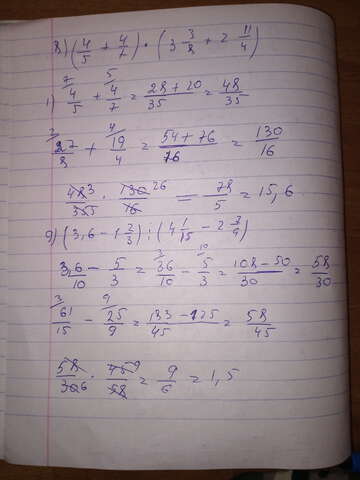 8) (4/5 + 4/7) · (3 3/8 + 2 11/4)
1) ⁷⁄ 4/5 + ⁵⁄ 4/7 = 28+20/35 = 48/35
²⁄ 27/8 + ⁴⁄ 19/4 = 54+76/16 = 130/16
48 3/35 5 · 130 26/16 = 78/5 = 15,6
9) (3,6 - 1 2/3) : (4 1/15 - 2 7/9)
3,6/10 - 5/3 = ³⁄ 36/10 - ¹⁰⁄ 5/3 = 108-50/30 = 58/30
³⁄ 61/15 - ⁹⁄ 25/9 = 183-125/45 = 58/45
58/30 6 · 45 9/58 = 9/6 = 1,5